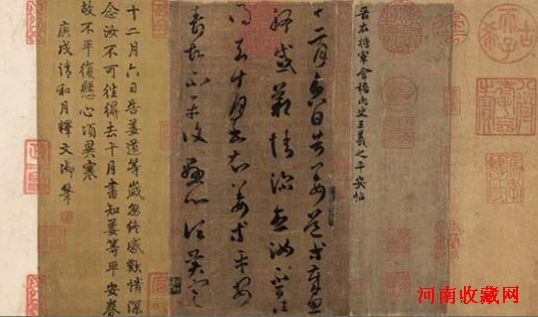 古希天子
晉右將軍會稽內史王羲之平安帖
十二月六日告姜道等歲忽
終感歎情深念汝不可往
得去十月書知姜等平安
眷故不平復懸心頃異寒
十二月六日告姜道等歲忽終感歎情深
念汝不可往得去十月書知姜等平安眷
故不平復懸心頃異寒
庚戌清和月釋文御筆
河南收藏网